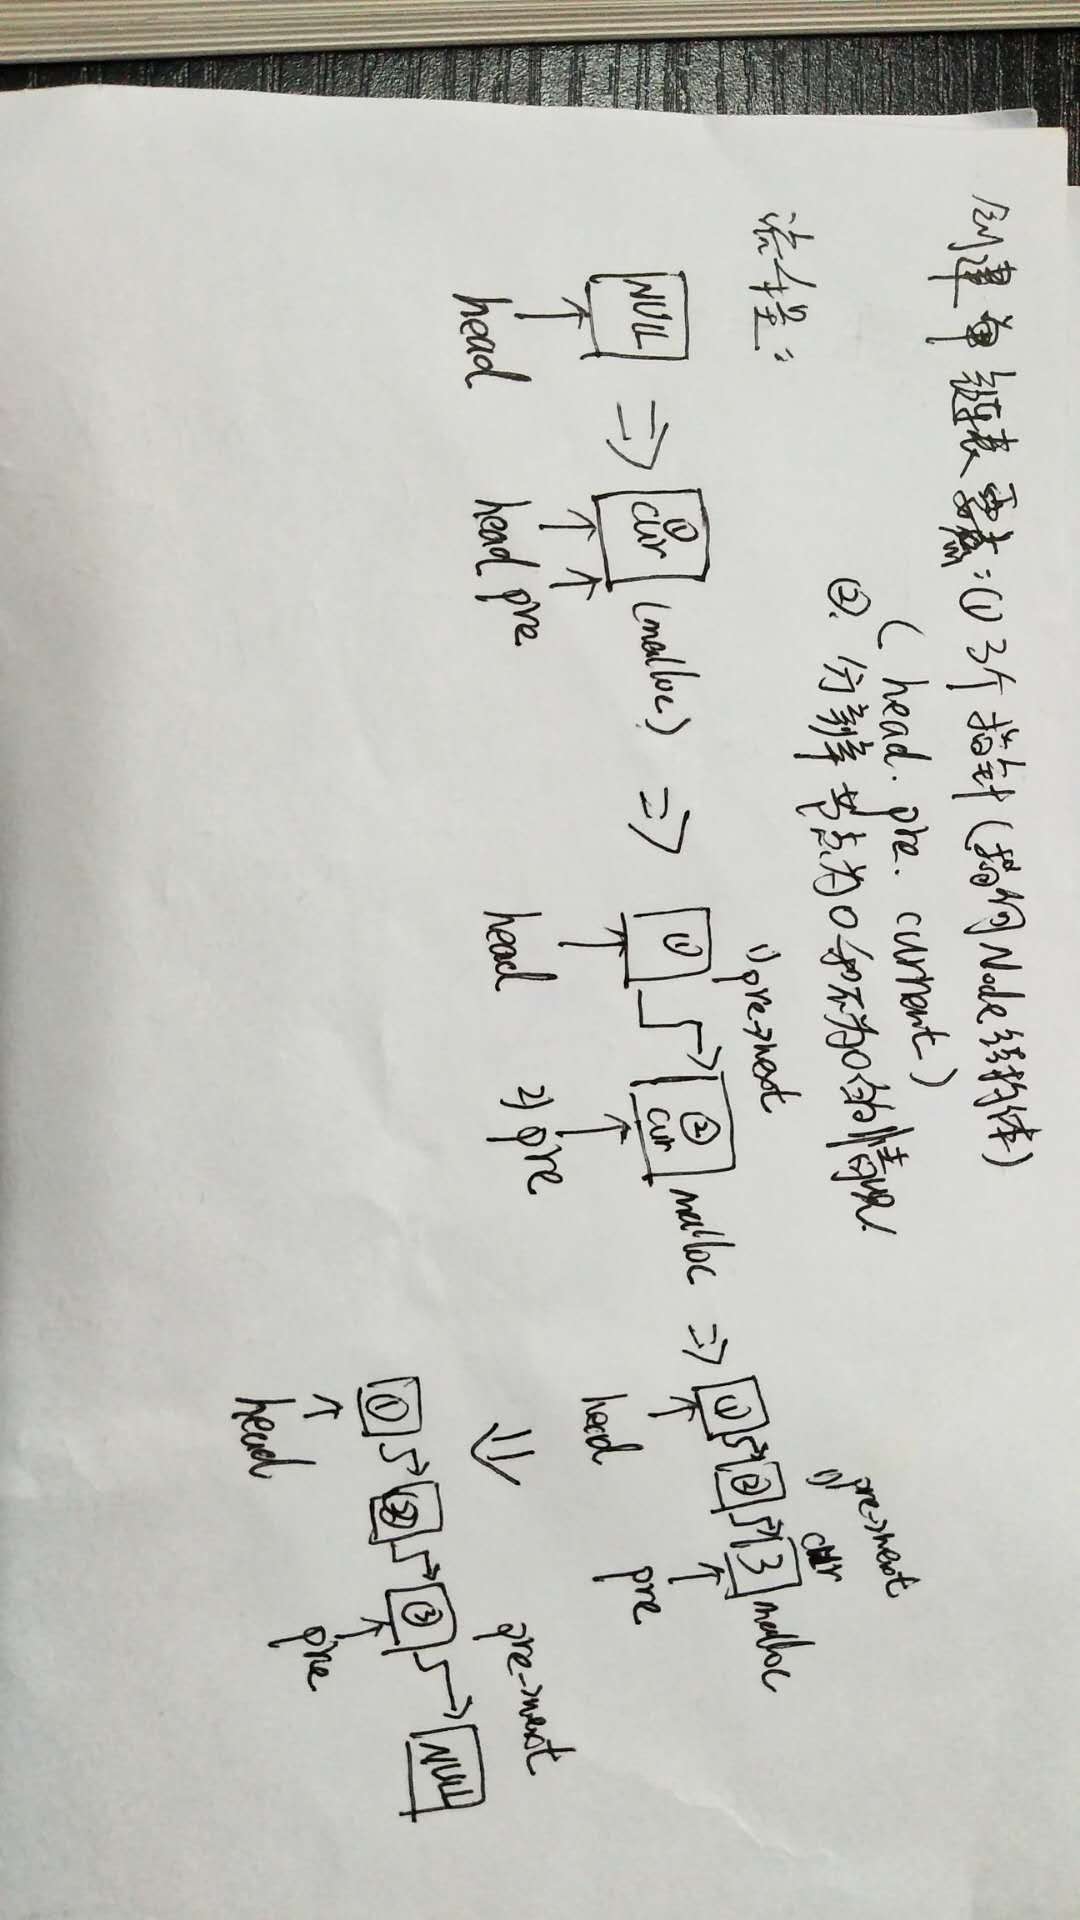 创建单链表要点:① 3个指针(指向Node结构体)
(head. pre. current)
②. 分辨节点为0和不为0的情况.
流程:
NULL
head
①
cur
(malloc)
head pre
1) pre->next
①
②
cur
malloc
head
2) pre
1) pre->next
cur
① ② 3 malloc
head
pre
pre->next
① ② ③ NULL
head
pre